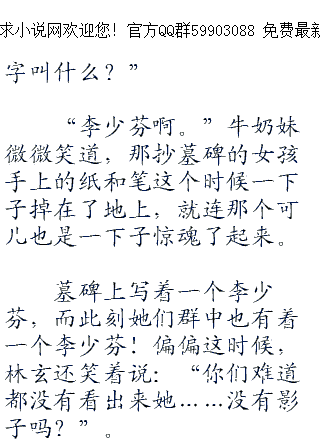 求小说网欢迎您！官方QQ群59903088 免费最新
字叫什么？”
“李少芬啊。”牛奶妹
微微笑道，那抄墓碑的女孩
手上的纸和笔这个时候一下
子掉在了地上，就连那个可
儿也是一下子惊魂了起来。
墓碑上写着一个李少
芬，而此刻她们群中也有着
一个李少芬！偏偏这时候，
林玄还笑着说：“你们难道
都没有看出来她……没有影
子吗？”。